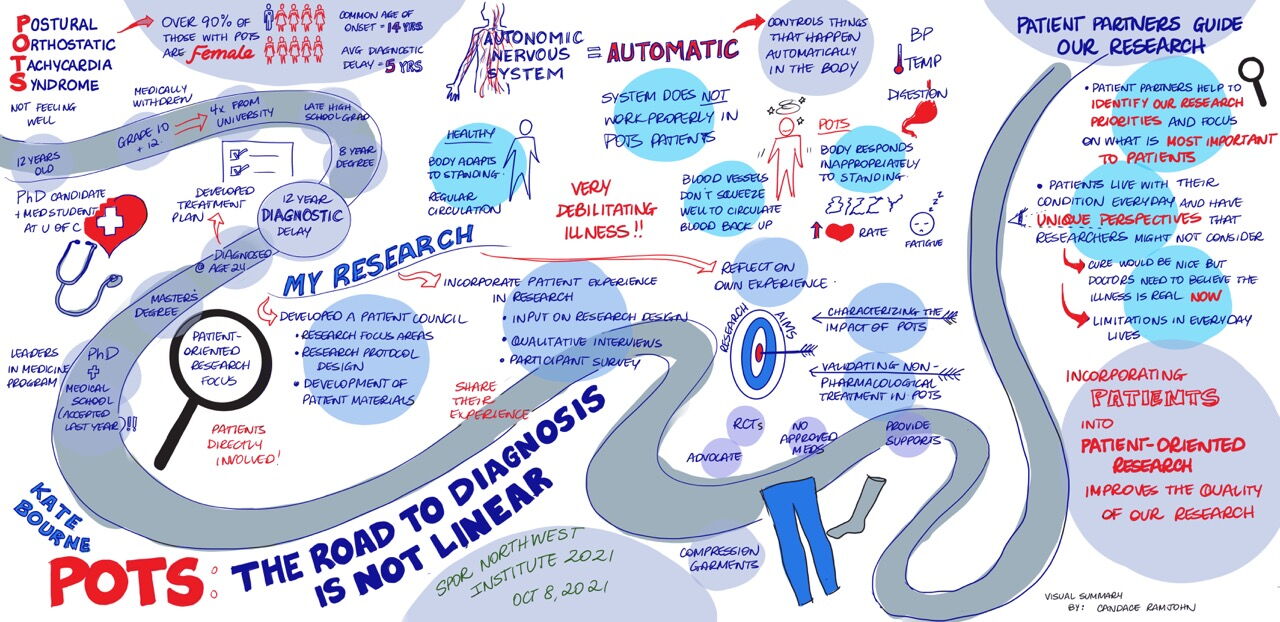 POSTURAL
ORTHOSTATIC
TACHYCARDIA
SYNDROME
OVER 90% OF
THOSE WITH POTS
ARE Female
COMMON AGE OF
ONSET = 14 YRS
AVG DIAGNOSTIC
DELAY = 5 YRS
NOT FEELING
WELL
12 YEARS
OLD
MEDICALLY
WITHDREW
GRADE 10
+ 12
4x FROM
UNIVERSITY
LATE HIGH
SCHOOL GRAD
8 YEAR
DEGREE
12 YEAR
DIAGNOSTIC
DELAY
DEVELOPED
TREATMENT
PLAN
DIAGNOSED
@ AGE 24
PhD CANDIDATE
+ MED STUDENT
AT U OF C
MASTER'S
DEGREE
LEADERS
IN MEDICINE
PROGRAM
PhD
+
MEDICAL
SCHOOL
(ACCEPTED
LAST YEAR)!!
PATIENT-
ORIENTED
RESEARCH
FOCUS
PATIENTS
DIRECTLY
INVOLVED!
AUTONOMIC
NERVOUS
SYSTEM
= AUTOMATIC
CONTROLS THINGS
THAT HAPPEN
AUTOMATICALLY
IN THE BODY
BP
TEMP
DIGESTION
HEALTHY
BODY ADAPTS
TO STANDING.
REGULAR
CIRCULATION
SYSTEM DOES NOT
WORK PROPERLY IN
POTS PATIENTS
VERY
DEBILITATING
ILLNESS!!
BLOOD VESSELS
DON'T SQUEEZE
WELL TO CIRCULATE
BLOOD BACK UP
POTS
BODY RESPONDS
INAPPROPRIATELY
TO STANDING.
DIZZY
RATE
z z z
FATIGUE
MY RESEARCH
DEVELOPED A PATIENT COUNCIL
• RESEARCH FOCUS AREAS
• RESEARCH PROTOCOL
DESIGN
• DEVELOPMENT OF
PATIENT MATERIALS
INCORPORATE PATIENT EXPERIENCE
IN RESEARCH
• INPUT ON RESEARCH DESIGN
• QUALITATIVE INTERVIEWS
• PARTICIPANT SURVEY
SHARE
THEIR
EXPERIENCE
REFLECT ON
OWN EXPERIENCE.
RESEARCH AIMS
CHARACTERIZING THE
IMPACT OF POTS
VALIDATING NON-
PHARMACOLOGICAL
TREATMENT IN POTS
RCTs
ADVOCATE
NO
APPROVED
MEDS
PROVIDE
SUPPORTS
COMPRESSION
GARMENTS
PATIENT PARTNERS GUIDE
OUR RESEARCH
• PATIENT PARTNERS HELP TO
IDENTIFY OUR RESEARCH
PRIORITIES AND FOCUS
ON WHAT IS MOST IMPORTANT
TO PATIENTS
• PATIENTS LIVE WITH THEIR
CONDITION EVERYDAY AND HAVE
UNIQUE PERSPECTIVES THAT
RESEARCHERS MIGHT NOT CONSIDER
CURE WOULD BE NICE BUT
DOCTORS NEED TO BELIEVE THE
ILLNESS IS REAL NOW
LIMITATIONS IN EVERYDAY
LIVES
INCORPORATING
PATIENTS
INTO
PATIENT-ORIENTED
RESEARCH
IMPROVES THE QUALITY
OF OUR RESEARCH
KATE
BOURNE
POTS: THE ROAD TO DIAGNOSIS
IS NOT LINEAR
SPOR NORTHWEST
INSTITUTE 2021
OCT 8, 2021
VISUAL SUMMARY
BY: CANDACE RAMJOHN